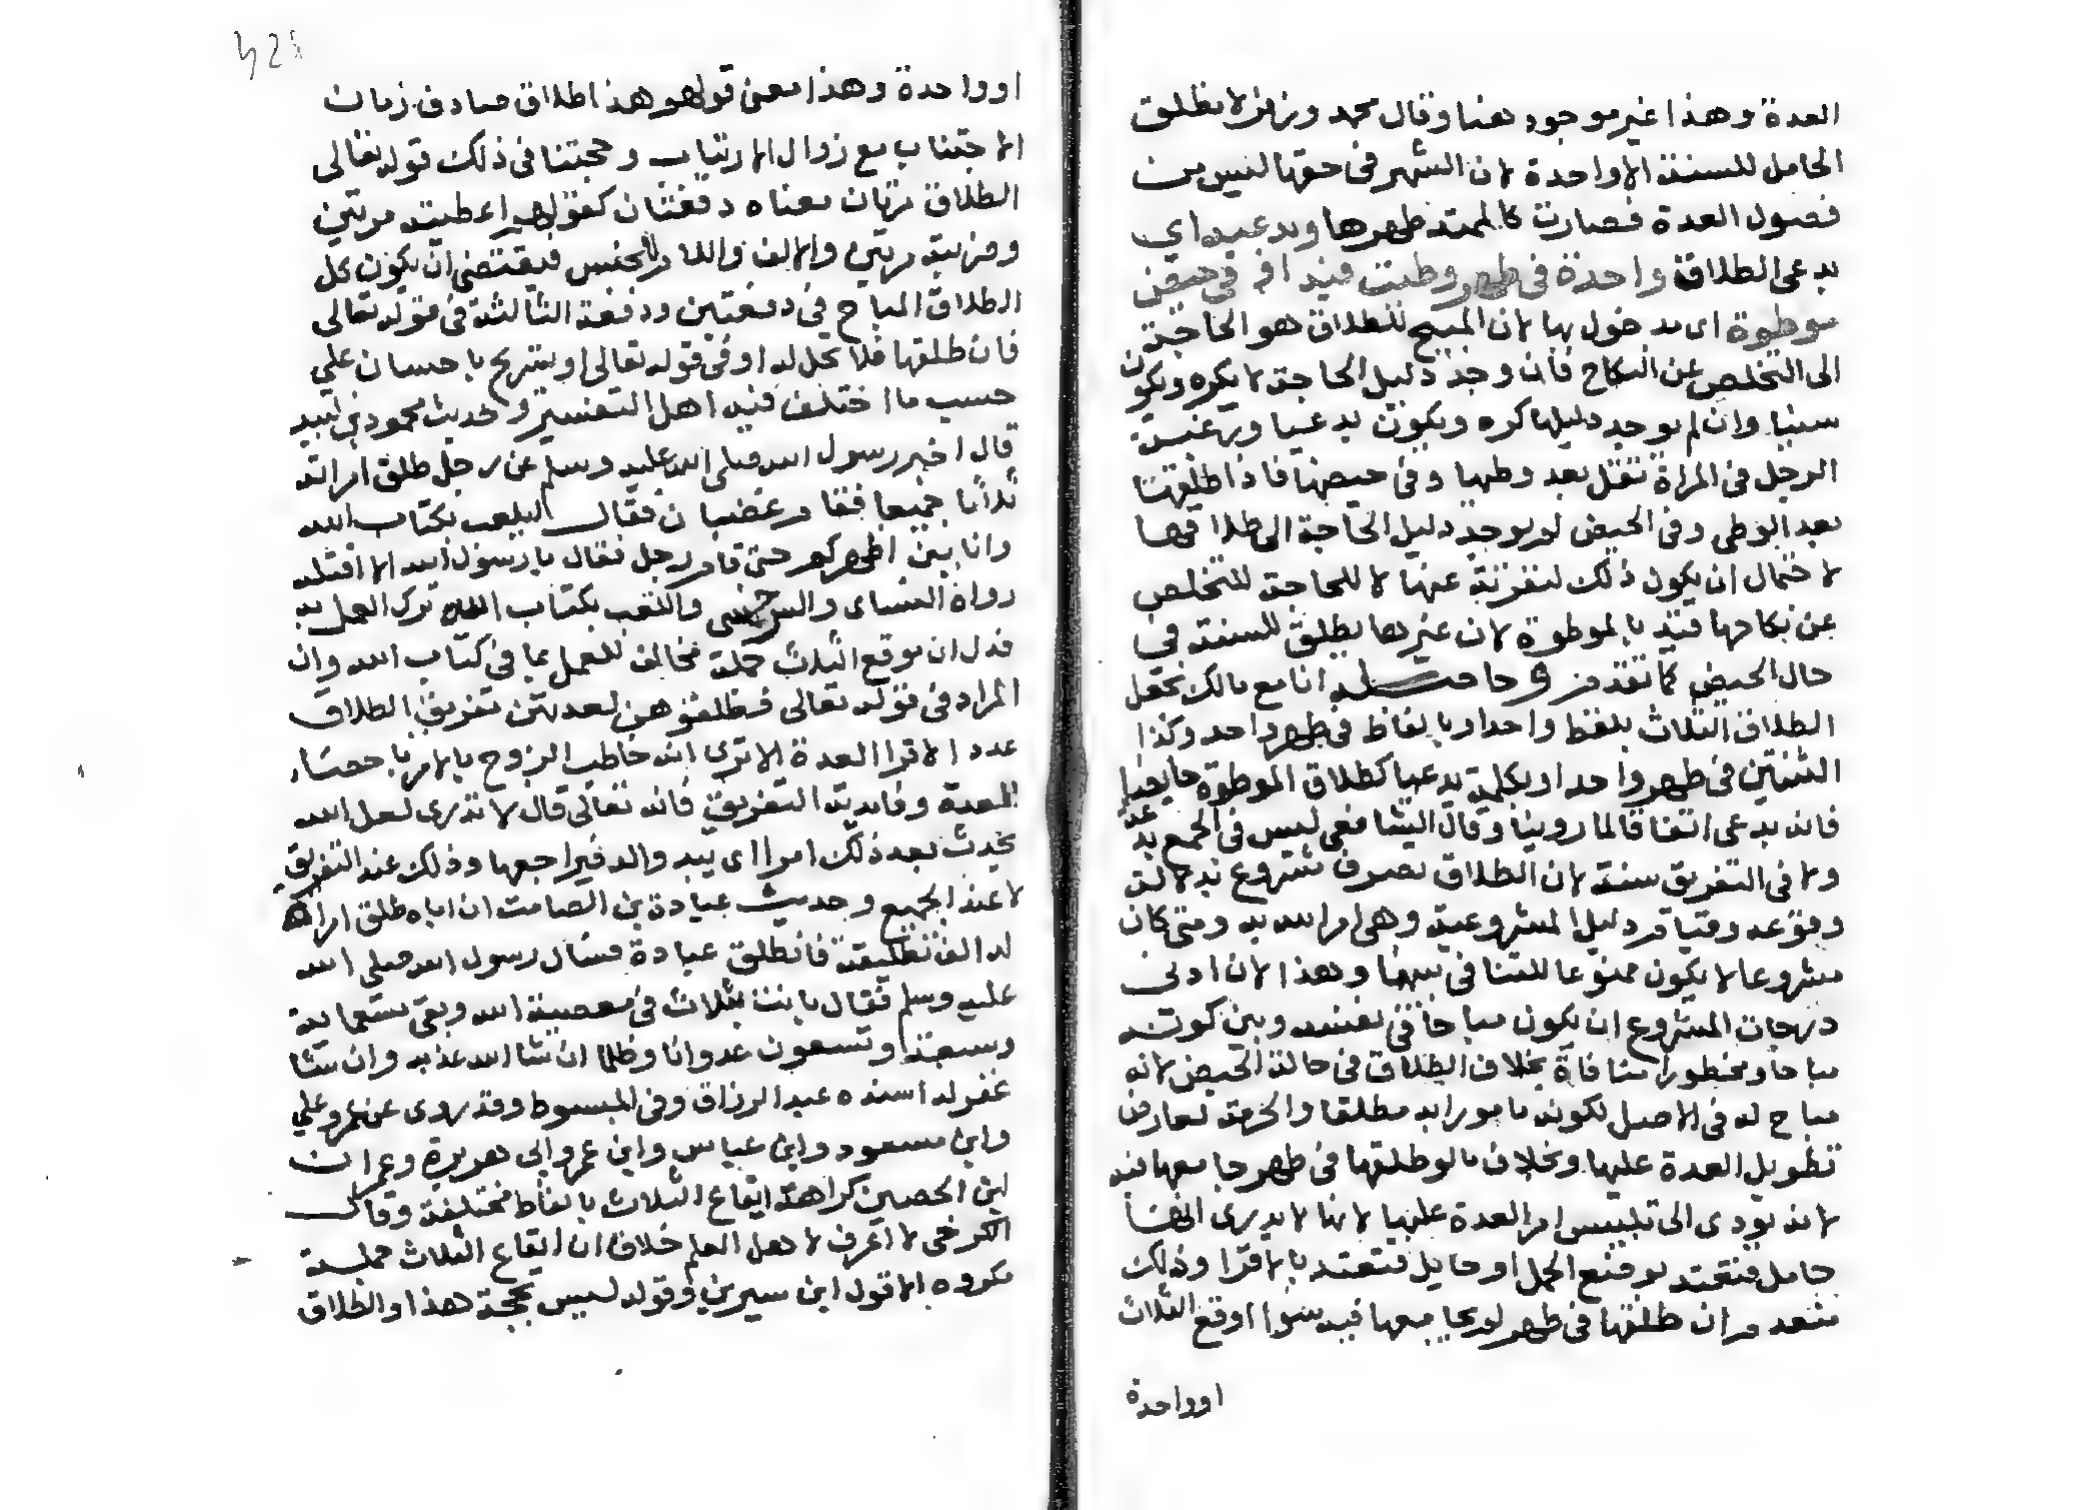 العدة وهذا غير موجود هنا وقال محمد وزفر لا يطلق
الحامل للسنة الا واحدة لان الشهر في حقها ليس من
فصول العدة فصارت كالممتد طهرها وبدعيه اي
بدعى الطلاق واحدة في طهر وطئت فيه او في حيض
موطوة اى مدخول بها لان المبيح للطلاق هو الحاجة
الى التخلص عن النكاح فان وجد دليل الحاجة لا يكره ويكون
سنيا وان لم يوجد دليلها كره ويكون بدعيا ورغبة
الرجل في المراة تقل بعد وطيها وفى حيضها فاذا طلقها
بعد الوطى وفى الحيض لم يوجد دليل الحاجة الى طلاقها
لاحتمال ان يكون ذلك لنفرته عنها لا للحاجة للتخلص
عن نكاحها قيد بالموطوة لان غيرها يطلق للسنة في
حال الحيض كما تقدم وحاصله انا مع مالك نجعل
الطلاق الثلاث بلفظ واحد او بالفاظ في طهر واحد وكذا
الثنتين في طهر واحد او بكلمة بدعيا كطلاق الموطوة حايضا
فانه بدعى اتفاقا لما روينا وقال الشافعى ليس فى الجمع بدعة
ولا فى التفريق سنة لان الطلاق تصرف مشروع بدلالة
وقوعه وقيام دليل المشروعية وهى امر الله به ومتى كان
مشروعا لا يكون ممنوعا للتنافى بينهما وهذا لان ادنى
درجات المشروع ان يكون مباحا في نفسه وبين كونه
مباحا ومحظورا منافاة بخلاف الطلاق فى حالة الحيض لانه
مباح له فى الاصل لكونه مامورا به مطلقا والحرمة لعارض
تطويل العدة عليها وبخلاف ما لو طلقها فى طهر جامعها فيه
لانه يودى الى تلبيس امر العدة عليها لانها لا يدرى انها
حامل فتعتد بوضع الحمل او حايل فتعتد بالاقرا وذلك
منعدم ان طلقها فى طهر لم يجامعها فيه سوا اوقع الثلاث
او واحدة
او واحدة وهذا معنى قولهم هذا طلاق صادف زمان
الاجتناب مع زوال الارتياب وحجتنا فى ذلك قوله تعالى
الطلاق مرتان معناه دفعتان كقولهم اعطيته مرتين
وضربته مرتين والالف واللام للجنس فيقتضى ان يكون كل
الطلاق المباح فى دفعتين ودفعة الثالثة فى قوله تعالى
فان طلقها فلا تحل له او فى قوله تعالى او تسريح باحسان على
حسب ما اختلف فيه اهل التفسير وحديث محمود بن لبيد
قال اخبر رسول الله صلى الله عليه وسلم عن رجل طلق امراته
ثلاثا جميعا فقام غضبان فقال ايلعب بكتاب الله
وانا بين اظهركم حتى قام رجل فقال يا رسول الله الا اقتله
رواه النساى والسرخسى واللعب بكتاب الله ترك العمل به
فدل ان موقع الثلاث جملة مخالف للعمل بما فى كتاب الله وان
المراد فى قوله تعالى فطلقوهن لعدتهن تفريق الطلاق
عدد الاقرا العدة الا ترى انه خاطب الزوج بالامر باحصاء
العدة وفايدته التفريق فانه تعالى قال لا تدرى لعل الله
يحدث بعد ذلك امرا اى يبد واله فيراجعها وذلك عند التفريق
لا عند الجميع وحديث عبادة بن الصامت ان اباه طلق امراة
له الف تطليقة فانطلق عبادة فسال رسول الله صلى الله
عليه وسلم فقال بانت بثلاث فى معصية الله وبقى تسعماية
وسبعة وتسعون عدوانا وظلما ان شا الله عذبه وان شا
غفر له اسنده عبد الرزاق وفى المبسوط وقد روى عن عمر وعلي
وابن مسعود وابن عباس وابن عمر وابى هريرة وعمران
ابن الحصين كراهة ايقاع الثلاث بالفاظ مختلفة وقال
الكرخى لا اعرف لاهل العلم خلافا ان ايقاع الثلاث جملة
مكروه الا قول ابن سيرين وقوله ليس بحجة هذا والطلاق